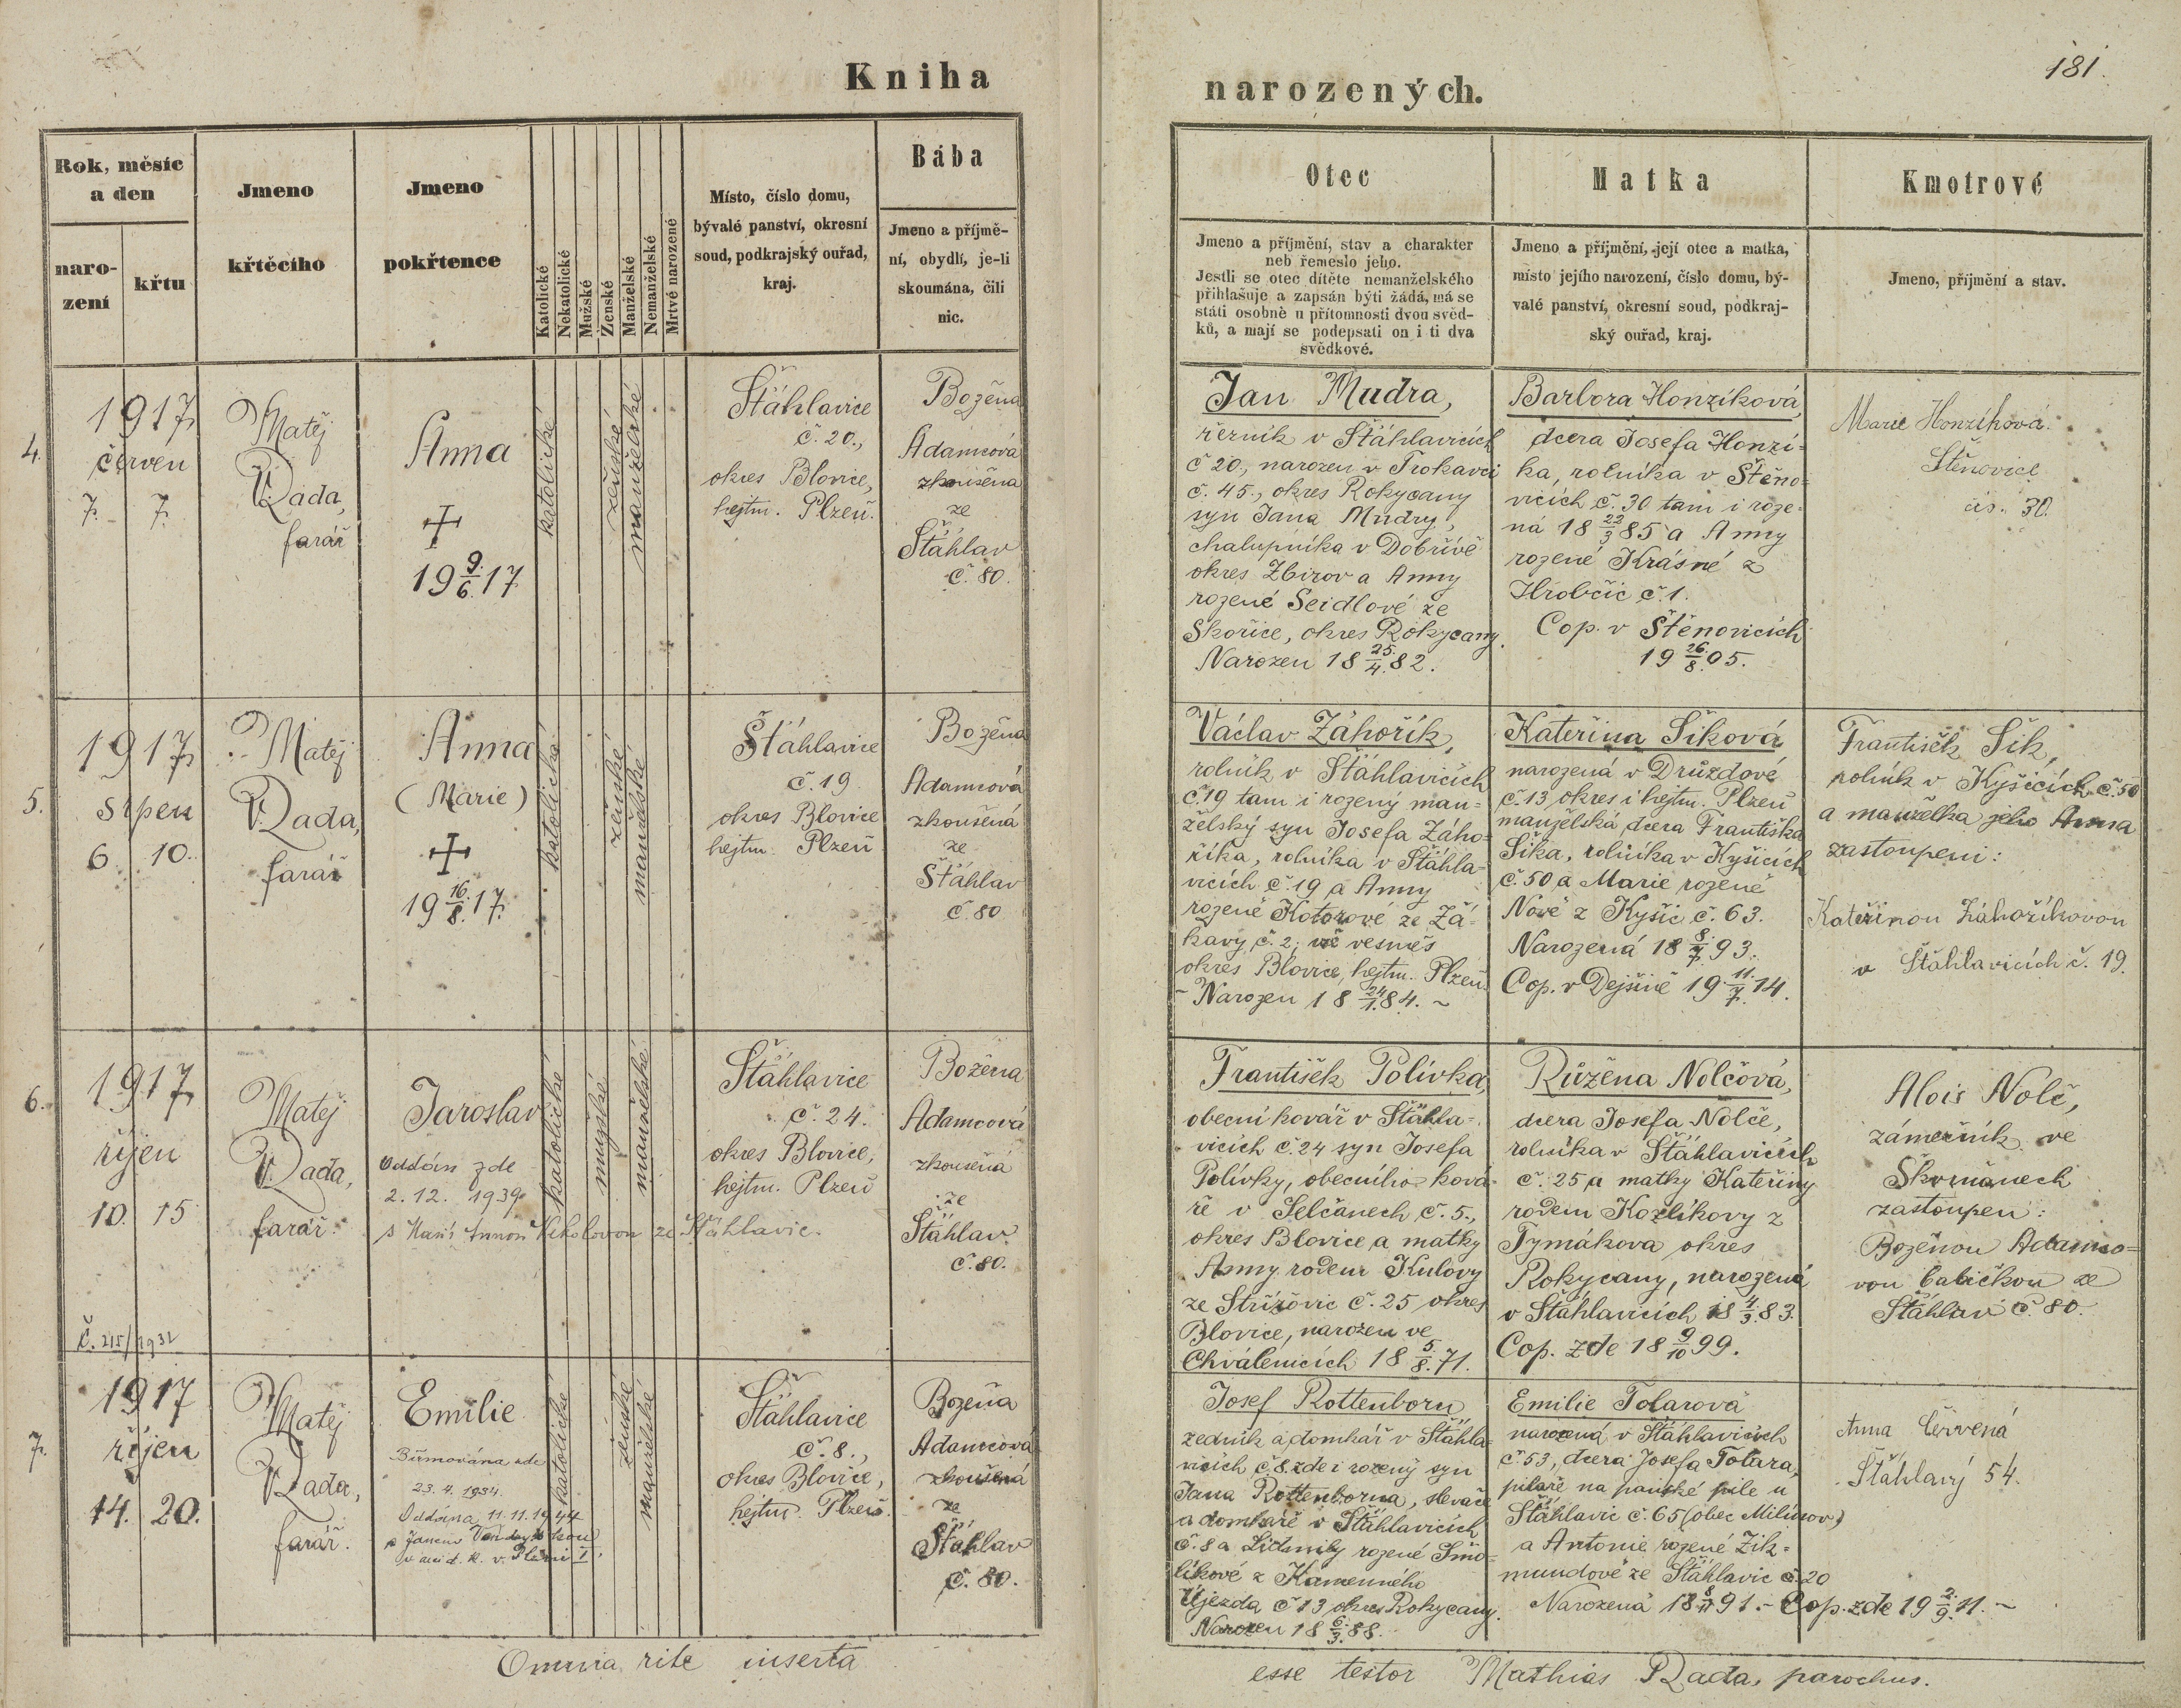 Kniha
narozených.
181.
Rok, měsíc
a den
naro-
zení
křtu
Jmeno
křtěcího
Jmeno
pokřtence
Katolické
Nekatolické
Mužské
Ženské
Manželské
Nemanželské
Mrtvě narozené
Místo, číslo domu,
bývalé panství, okresní
soud, podkrajský ouřad,
kraj.
Bába
Jmeno a příjmě-
ní, obydlí, je-li
skoumána, čili
nic.
Otec
Jmeno a příjmění, stav a charakter
neb řemeslo jeho.
Jestli se otec dítěte nemanželského
přihlašuje a zapsán býti žádá, má se
státi osobně u přítomnosti dvou svěd-
ků, a mají se podepsati on i ti dva
svědkové.
Matka
Jmeno a příjmění, její otec a matka,
místo jejího narození, číslo domu, bý-
valé panství, okresní soud, podkraj-
ský ouřad, kraj.
Kmotrové
Jmeno, přijmění a stav.
4.
1917
červen
7. 7.
Matěj
Rada,
farář
Anna
+
19 9/6. 17
katolické
ženské
manželské
Šťáhlavice
č. 20.,
okres Blovice,
hejtm. Plzeň.
Božena
Adamcová
zkoušena
ze
Šťáhlav
č. 80.
Jan Mudra,
řezník v Šťáhlavicích
č 20., narozen v Trokavci
č. 45., okres Rokycany
syn Jana Mudry,
chalupníka v Dobřívě
okres Zbirov a Anny
rozené Seidlové ze
Skořice, okres Rokycany.
Narozen 18 25./4. 82.
Barbora Honzíková,
dcera Josefa Honzí-
ka, rolníka v Štěno-
vicích č. 30 tam i roze-
ná 18 22/3 85 a Anny
rozené Krásné z
Hrobčic č. 1.
Cop. v Štěnovicích
19 26./8. 05.
Marie Honzíková.
Štěnovice
čís. 30.
5.
1917
srpen
6. 10.
Matěj
Rada,
farář
Anna
(Marie)
+
19 16./8. 17.
katolické
ženské
manželské
Šťáhlavice
č. 19
okres Blovice
hejtm. Plzeň
Božena
Adamcová
zkoušená
ze
Šťáhlav
č. 80
Václav Záhořík,
rolník v Šťáhlavicích
č. 19 tam i rozený man-
želský syn Josefa Záho-
říka, rolníka v Šťáhla-
vicích č. 19 a Anny
rozené Kotorové ze Žá-
kavy č. 2; vesměs
okres Blovice, hejtm. Plzeň.
- Narozen 18 24/1. 84. ~
Kateřina Šiková
narozená v Druzdově
č. 13 okres i hejtm. Plzeň
manželská dcera Františka
Šika, rolníka v Kyšicích
č. 50 a Marie rozené
Nové z Kyšic č. 63.
Narozená 18 8./7. 93.
Cop. v Dejšině 19 11./7. 14.
František Šik,
rolník v Kyšicích č. 50
a manželka jeho Anna
zastoupeni:
Kateřinou Záhoříkovou
v Šťáhlavicích č. 19.
6.
1917
říjen
10. 15
Matěj
Rada,
farář.
Jaroslav
Oddán zde
2. 12. 1939
s Marií Annou ze Šťáhlavic.
katolické
mužské
manželské
Šťáhlavice
č. 24.
okres Blovice,
hejtm. Plzeň
Božena
Adamcová
zkoušená
ze
Šťáhlav
č. 80.
František Polívka,
obecní kovář v Šťáhla-
vicích č. 24 syn Josefa
Polívky, obecního ková-
ře v Selčanech č. 5.,
okres Blovice a matky
Anny rodem Kulovy
ze Střížovic č. 25 okres
Blovice, narozen ve
Chválenicích 18 5./8. 71.
Růžena Nolčová,
dcera Josefa Nolče,
rolníka v Šťáhlavicích
č. 25 a matky Kateřiny
rodem Kozlíkovy z
Tymákova okres
Rokycany, narozená
v Šťáhlavicích 18 4./3. 83.
Cop. zde 18 9/10 99.
Alois Nolč,
zámečník ve
Škvrňanech
zastoupen:
Boženou Adamco-
vou babičkou ze
Šťáhlav č 80.
Č. 215/1932
7.
1917
říjen
14. 20.
Matěj
Rada,
farář.
Emilie
Biřmována zde
23. 4. 1934.
Oddána 11. 11. 1944
s Janem
v Plzni I.
katolické
ženské
manželské
Šťáhlavice
č. 8.,
okres Blovice,
hejtm. Plzeň.
Božena
Adamcová
zkoušená
ze
Šťáhlav
č. 80.
Josef Rottenborn
zedník a domkář v Šťáhla-
vicích č. 8. zde i rozený syn
Jana Rottenborna, slevače
a domkáře v Šťáhlavicích
č. 8 a Lidmily rozené Smo-
líkové z Kamenného
Újezda č 13 okres Rokycany.
Narozen 18 6./3. 88.
Emilie Tolarová
narozená v Šťáhlavicích
č. 53, dcera Josefa Tolara,
pilaře na panské pile u
Šťáhlavic č. 65 (obec Milínov)
a Antonie rozené Zik-
mundové ze Šťáhlavic č. 20
Narozená 18 8/11 91. - Cop. zde 19 2./9. 11. ~
Anna Červená
Šťáhlavy 54.
Omnia rite inserta
esse testor Mathias Rada, parochus.